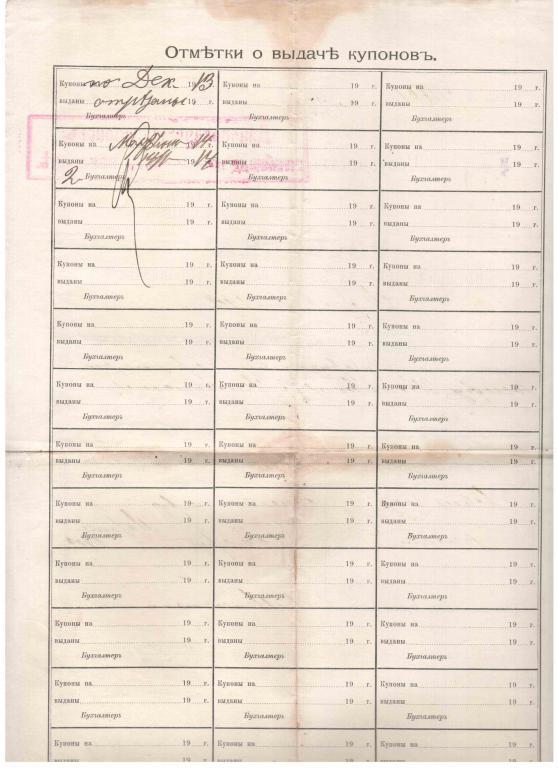 Отмѣтки о выдачѣ купоновъ.
Купоны по Дек 1913 Купоны на 19 г. Купоны на 19 г.
выданы отрѣзаны 19 г. выданы 19 г. выданы 19 г.
Бухгалтеръ Бухгалтеръ Бухгалтеръ
Купоны на 19 Купоны на 19 г. Купоны на 19 г.
выданы 19 выданы 19 г. выданы 19 г.
2 Бухгалтеръ Бухгалтеръ Бухгалтеръ
Купоны на 19 г. Купоны на 19 г. Купоны на 19 г.
выданы 19 г. выданы 19 г. выданы 19 г.
Бухгалтеръ Бухгалтеръ Бухгалтеръ
Купоны на 19 г. Купоны на 19 г. Купоны на 19 г.
выданы 19 г. выданы 19 г. выданы 19 г.
Бухгалтеръ Бухгалтеръ Бухгалтеръ
Купоны на 19 г. Купоны на 19 г. Купоны на 19 г.
выданы 19 г. выданы 19 г. выданы 19 г.
Бухгалтеръ Бухгалтеръ Бухгалтеръ
Купоны на 19 г. Купоны на 19 г. Купоны на 19 г.
выданы 19 г. выданы 19 г. выданы 19 г.
Бухгалтеръ Бухгалтеръ Бухгалтеръ
Купоны на 19 г. Купоны на 19 г. Купоны на 19 г.
выданы 19 г. выданы 19 г. выданы 19 г.
Бухгалтеръ Бухгалтеръ Бухгалтеръ
Купоны на 19 г. Купоны на 19 г. Купоны на 19 г.
выданы 19 г. выданы 19 г. выданы 19 г.
Бухгалтеръ Бухгалтеръ Бухгалтеръ
Купоны на 19 г. Купоны на 19 г. Купоны на 19 г.
выданы 19 г. выданы 19 г. выданы 19 г.
Бухгалтеръ Бухгалтеръ Бухгалтеръ
Купоны на 19 г. Купоны на 19 г. Купоны на 19 г.
выданы 19 г. выданы 19 г. выданы 19 г.
Бухгалтеръ Бухгалтеръ Бухгалтеръ
Купоны на 19 г. Купоны на 19 г. Купоны на 19 г.
выданы 19 г. выданы 19 г. выданы 19 г.
Бухгалтеръ Бухгалтеръ Бухгалтеръ
Купоны на 19 г. Купоны на 19 г. Купоны на 19 г.
выданы 19 г. выданы 19 г. выданы 19 г.